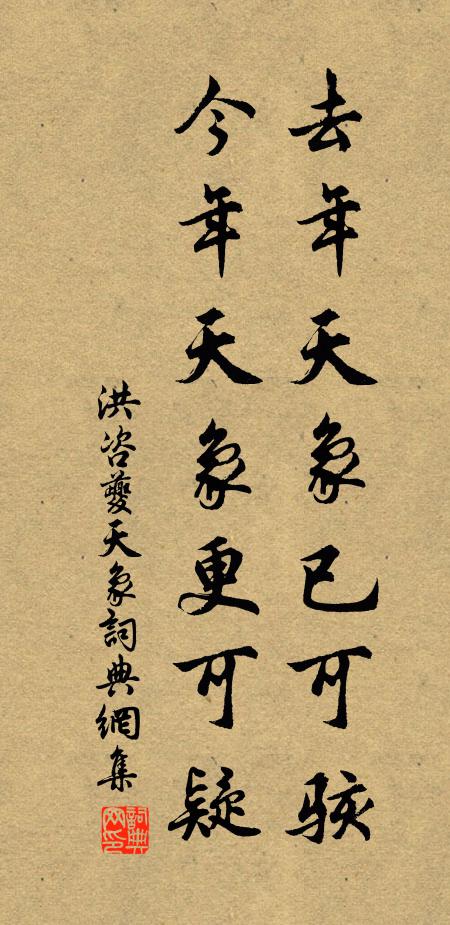 去年天象已可駭
今年天象更可疑
洪咨夔天象詞典網集
詞典網印